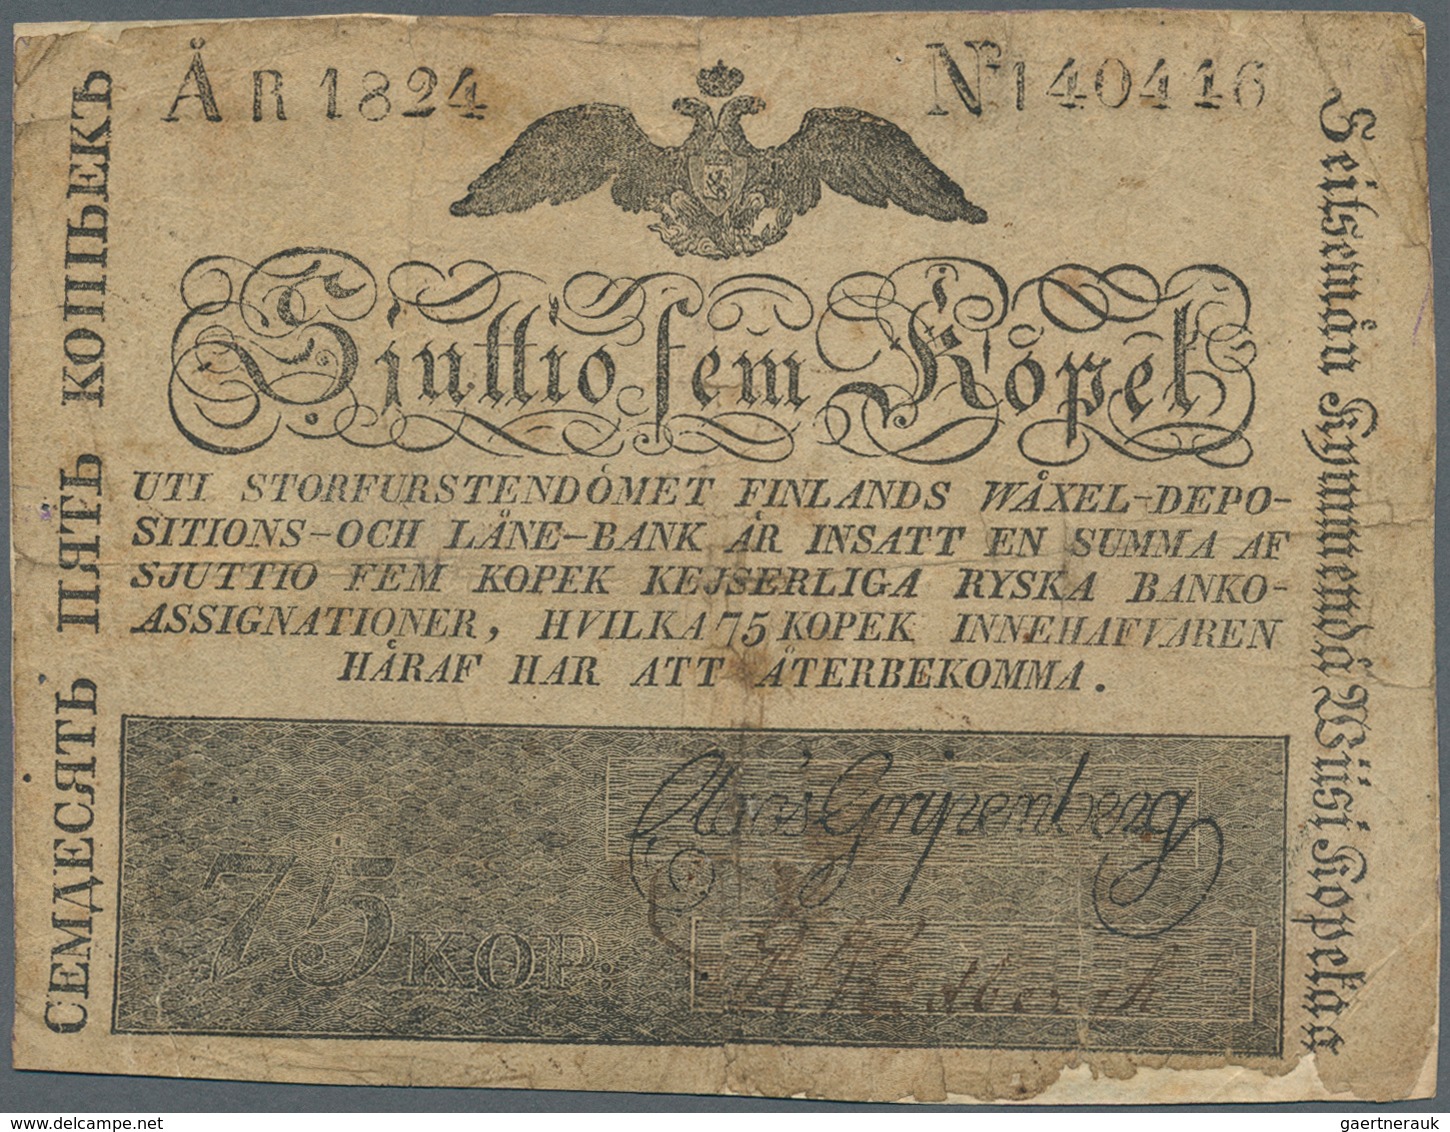 ÅR 1824
No 140446
Sjuttio fem Kopek
UTI STORFURSTENDÖMET FINLANDS WÄXEL-DEPO-
SITIONS-OCH LÅNE-BANK ÄR INSATT EN SUMMA AF
SJUTTIO FEM KOPEK KEJSERLIGA RYSKA BANKO-
ASSIGNATIONER, HVILKA 75 KOPEK INNEHAFVAREN
HÄRAF HAR ATT ÅTERBEKOMMA.
75 KOP.
Gripenberg
СЕМДЕСЯТЬ ПЯТЬ КОПѢЕКЪ
Seitsemän Kymmendä Wiisi Kopekaa
gaertnerauk / delcampe.net